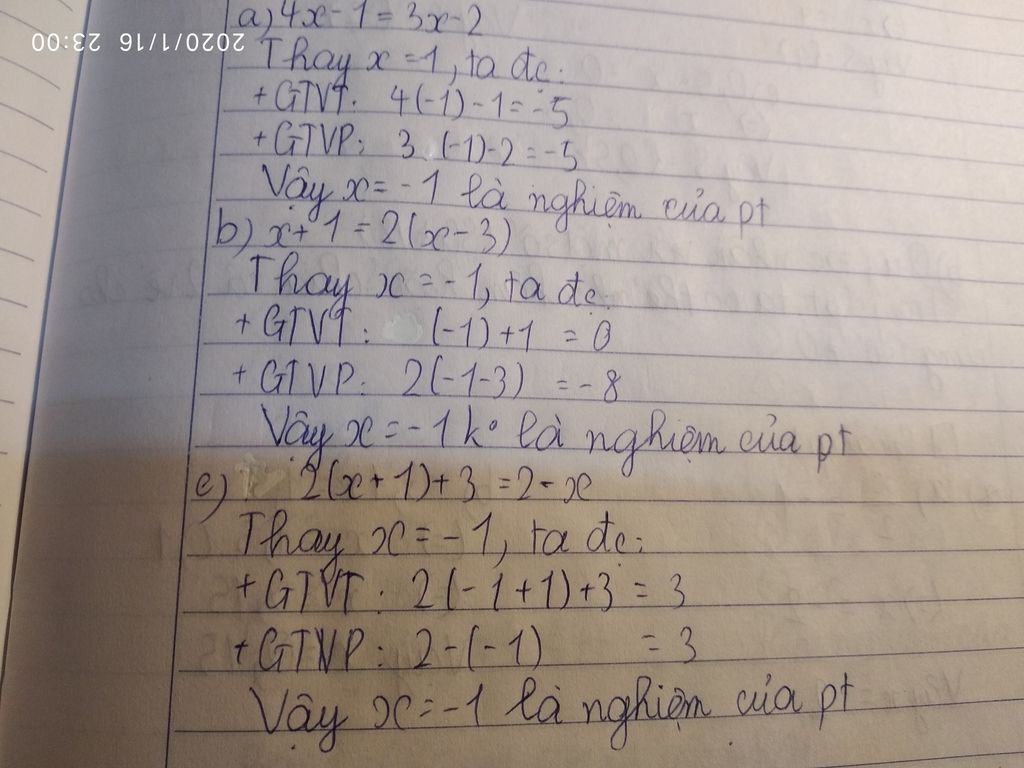 a) 4x - 1 = 3x - 2
2020/1/16 23:00
Thay x = 1, ta đc:
+ GTVT: 4(-1) - 1 = -5
+ GTVP: 3.(-1) - 2 = -5
Vậy x = -1 là nghiệm của pt
b) x + 1 = 2(x - 3)
Thay x = -1, ta đc
+ GTVT: (-1) + 1 = 0
+ GTVP: 2(-1-3) = -8
Vậy x = -1 kº là nghiệm của pt
c) 2(x + 1) + 3 = 2 - x
Thay x = -1, ta đc:
+ GTVT: 2(-1 + 1) + 3 = 3
+ GTVP: 2 - (-1) = 3
Vậy x = -1 là nghiệm của pt